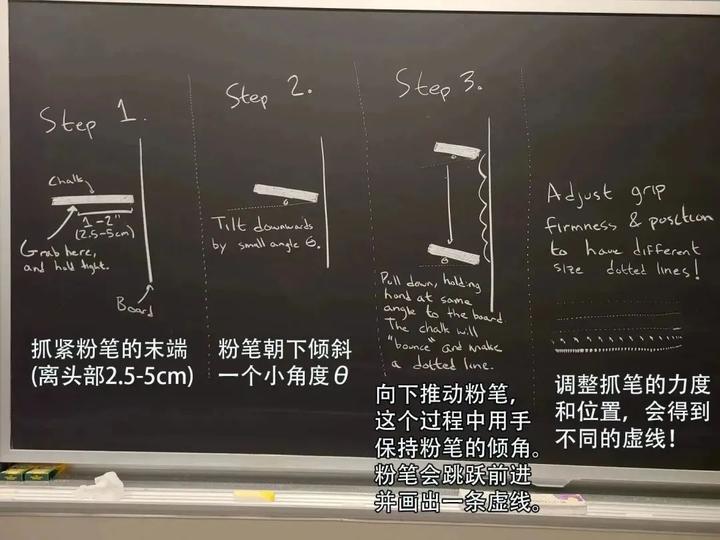 Step 1.
Chalk
1-2"
(2.5-5cm)
Grab here,
and hold tight.
Board
抓紧粉笔的末端
(离头部2.5-5cm)
Step 2.
θ
Tilt downwards
by small angle θ.
粉笔朝下倾斜
一个小角度θ
Step 3.
θ
θ
Pull down, holding
hand at same
angle to the board.
The chalk will
"bounce" and make
a dotted line.
向下推动粉笔，
这个过程中用手
保持粉笔的倾角。
粉笔会跳跃前进
并画出一条虚线。
Adjust grip
firmness & position
to have different
size dotted lines!
调整抓笔的力度
和位置，会得到
不同的虚线！